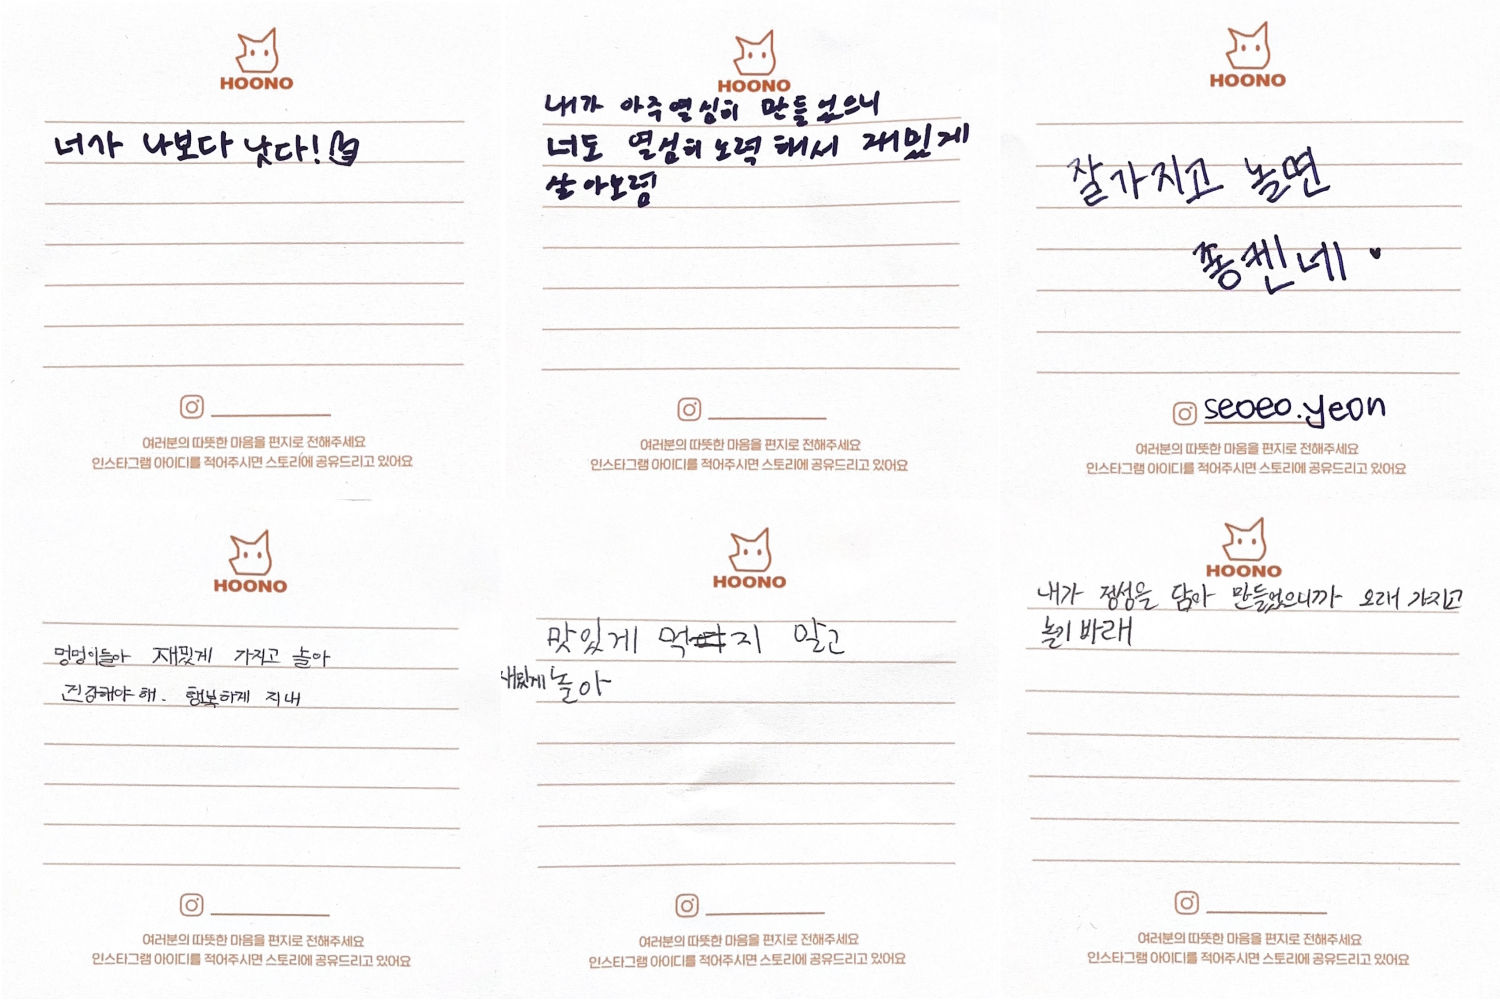 HOONO
너가 나보다 낫다!
여러분의 따뜻한 마음을 편지로 전해주세요
인스타그램 아이디를 적어주시면 스토리에 공유드리고 있어요
HOONO
내가 아주 열심히 만들었으니
너도 열심히 노력해서 재밌게
살아보렴
여러분의 따뜻한 마음을 편지로 전해주세요
인스타그램 아이디를 적어주시면 스토리에 공유드리고 있어요
HOONO
잘가지고 놀면
좋겠네
seoeo.yeon
여러분의 따뜻한 마음을 편지로 전해주세요
인스타그램 아이디를 적어주시면 스토리에 공유드리고 있어요
HOONO
멍멍이들아 재밌게 가지고 놀아
건강해야 해. 행복하게 지내
여러분의 따뜻한 마음을 편지로 전해주세요
인스타그램 아이디를 적어주시면 스토리에 공유드리고 있어요
HOONO
맛있게 먹지 말고
재밌게 놀아
여러분의 따뜻한 마음을 편지로 전해주세요
인스타그램 아이디를 적어주시면 스토리에 공유드리고 있어요
HOONO
내가 정성을 담아 만들었으니까 오래 가지고
놀기 바래
여러분의 따뜻한 마음을 편지로 전해주세요
인스타그램 아이디를 적어주시면 스토리에 공유드리고 있어요